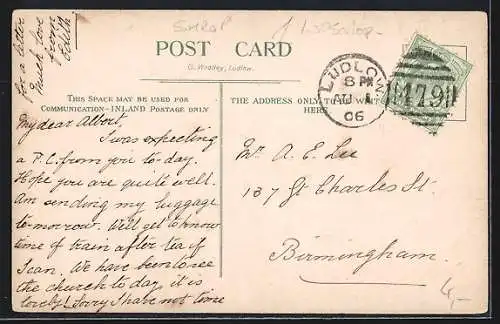 for a letter
Much love
from
Edith
SHROP
POST CARD
G. Woolley, Ludlow.
THIS SPACE MAY BE USED FOR
COMMUNICATION—INLAND POSTAGE ONLY
THE ADDRESS ONLY TO BE WRITTEN
HERE.
LUDLOW
8 PM
AU 1
06
479
My dear Albert,
I was expecting
a P.C. from you to-day.
Hope you are quite well.
Am sending my luggage
to-morrow. Will get to know
time of train after tea if
I can. We have been to see
the church to day, it is
lovely! Sorry I have not time
Mr A. E. Lee
137 St Charles St.
Birmingham.
4,-